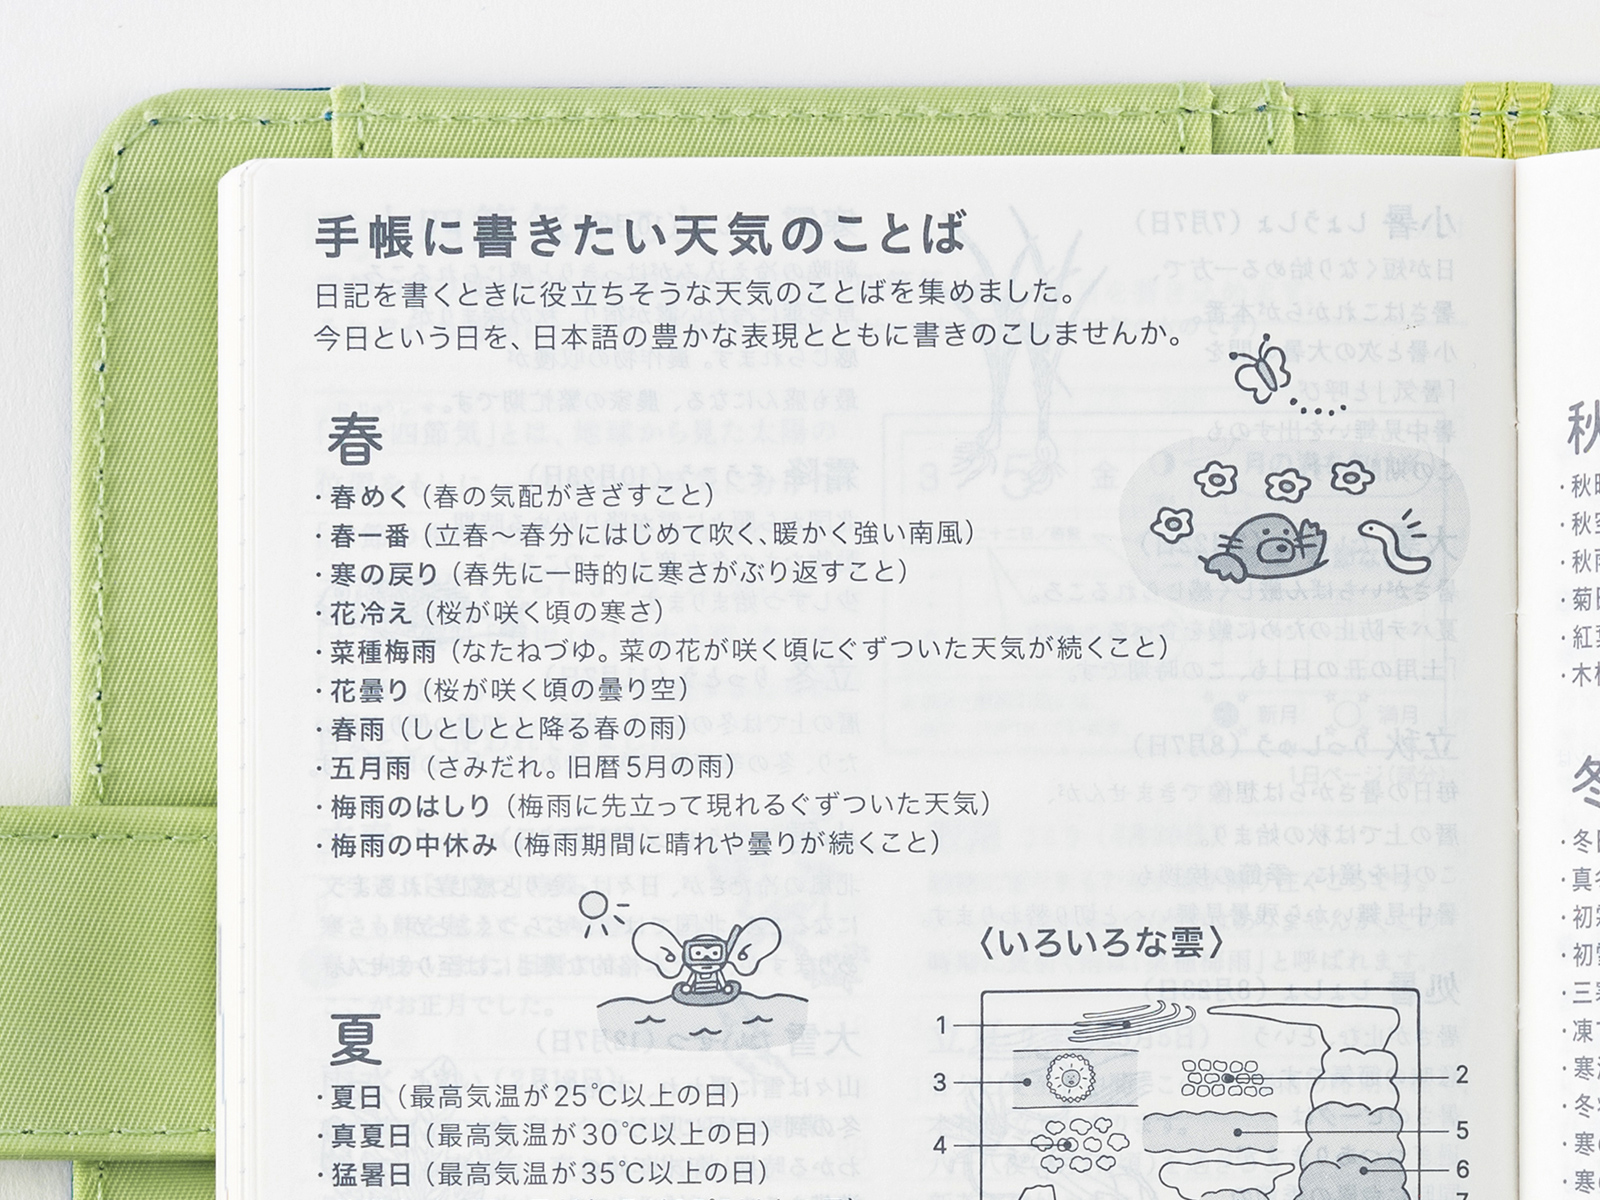 手帳に書きたい天気のことば
日記を書くときに役立ちそうな天気のことばを集めました。
今日という日を、日本語の豊かな表現とともに書きのこしませんか。
春
・春めく（春の気配がきざすこと）
・春一番（立春～春分にはじめて吹く、暖かく強い南風）
・寒の戻り（春先に一時的に寒さがぶり返すこと）
・花冷え（桜が咲く頃の寒さ）
・菜種梅雨（なたねづゆ。菜の花が咲く頃にぐずついた天気が続くこと）
・花曇り（桜が咲く頃の曇り空）
・春雨（しとしとと降る春の雨）
・五月雨（さみだれ。旧暦5月の雨）
・梅雨のはしり（梅雨に先立って現れるぐずついた天気）
・梅雨の中休み（梅雨期間に晴れや曇りが続くこと）
夏
・夏日（最高気温が25℃以上の日）
・真夏日（最高気温が30℃以上の日）
・猛暑日（最高気温が35℃以上の日）
〈いろいろな雲〉
1
2
3
4
5
6
秋
・秋
・秋空
・秋雨
・菊
・紅葉
・木
冬
・冬
・真冬
・初
・初雪
・三寒
・凍
・寒
・冬
・寒の
・寒